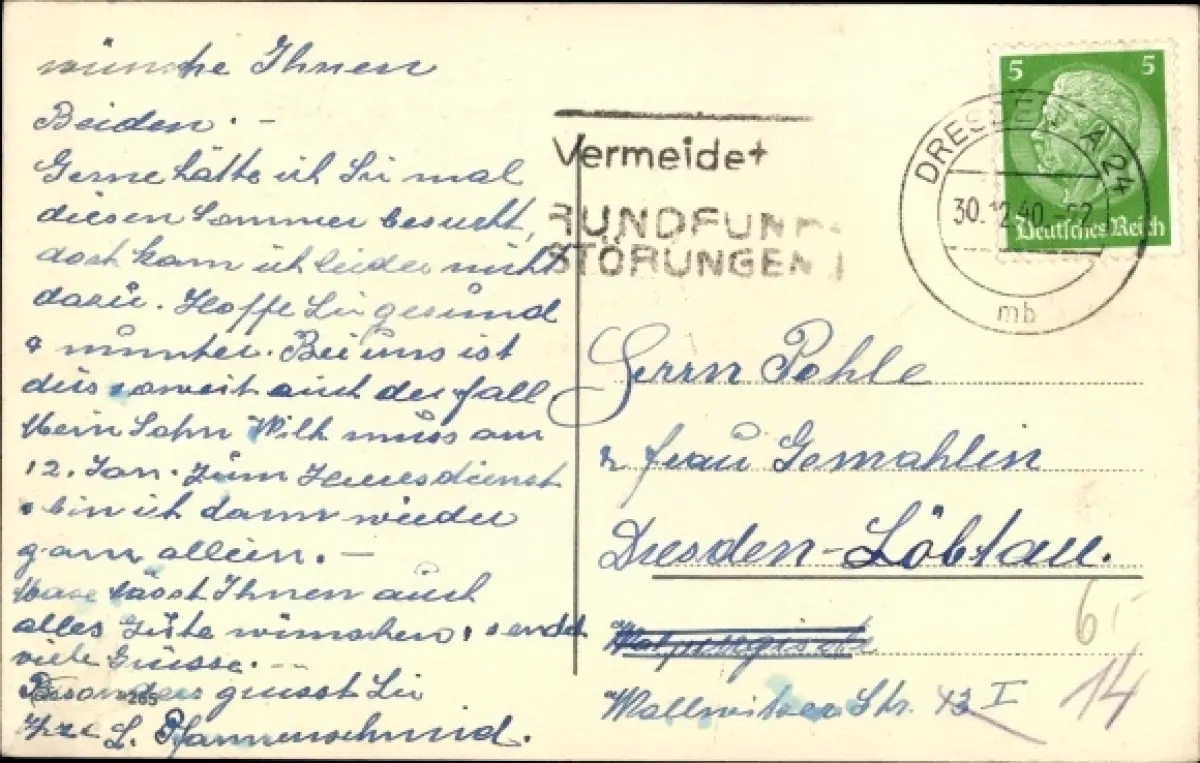 wünsche Ihnen
Beiden. –
Gerne hätte ich Sie mal
diesen Sommer besucht,
doch kam ich leider nicht
dazu. Hoffe Sie gesund
& munter. Bei uns ist
dies soweit auch der Fall.
Mein Sohn Wilh muss am
12. Jan. zum Heeresdienst
& bin ich dann wieder
ganz allein. –
lässt Ihnen auch
alles Gute wünschen, sendet
viele Grüsse. –
Besonders grüsst Sie
Ihre L. Pfannenschmid.
265
Vermeidet
RUNDFUNK-
STÖRUNGEN!
5 5
Deutsches Reich
DRESDEN A 24
30.12.40.-
mb
Herrn Pohle
& Frau Gemahlin
Dresden-Löbtau.
Wallwitzer Str. 13 I
6,-
14